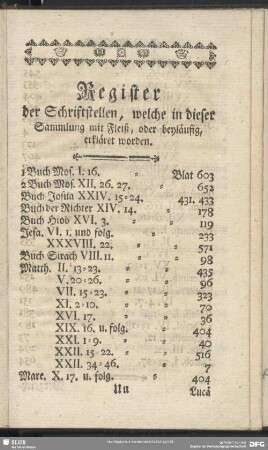 Register
der Schriftstellen, welche in dieser
Sammlung mit Fleiß, oder beyläufig,
erkläret worden.
1 Buch Mos. I. 16. Blat 603
2 Buch Mos. XII. 26. 27. 652
Buch Josua XXIV. 15-24. 431. 433
Buch der Richter XIV. 14. 178
Buch Hiob XVI. 3. 119
Jesa. VI. 1. und folg. 233
XXXVIII. 22. 571
Buch Sirach VIII. 11. 98
Matth. II. 13-23. 435
V. 20-26. 96
VII. 15-23. 323
XI. 2-10. 70
XVI. 17. 36
XIX. 16. u. folg. 404
XXI. 1-9. 40
XXII. 15-22. 516
XXII. 34-46. 7
Marc. X. 17. u. folg. 404
Uu Lucä
SLUB
DFG